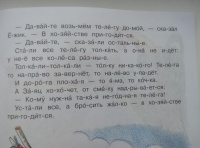 — Да-вай-те возь-мём те-ле-гу до-мой, — ска-зал
Ёжик. — В хо-зяй-стве при-го-дит-ся.
— Да-вай-те, — ска-за-ли ос-таль-ны-е.
Ста-ли все те-ле-гу тол-кать, а о-на не и-дёт:
у не-ё все ко-лё-са раз-ны-е.
Тол-ка-ли-тол-ка-ли — тол-ку ни-ка-ко-го! Те-ле-га
то на-пра-во за-вер-нёт, то на-ле-во у-па-дёт.
И до-ро-га пло-ха-я — то я-ма, то коч-ка.
А За-яц хо-хо-чет, от сме-ху над-ры-ва-ет-ся:
— Ко-му нуж-на та-ка-я не-год-на-я те-ле-га!
Ус-та-ли все, а бро-сить жал-ко — в хо-зяй-стве
при-го-дит-ся.